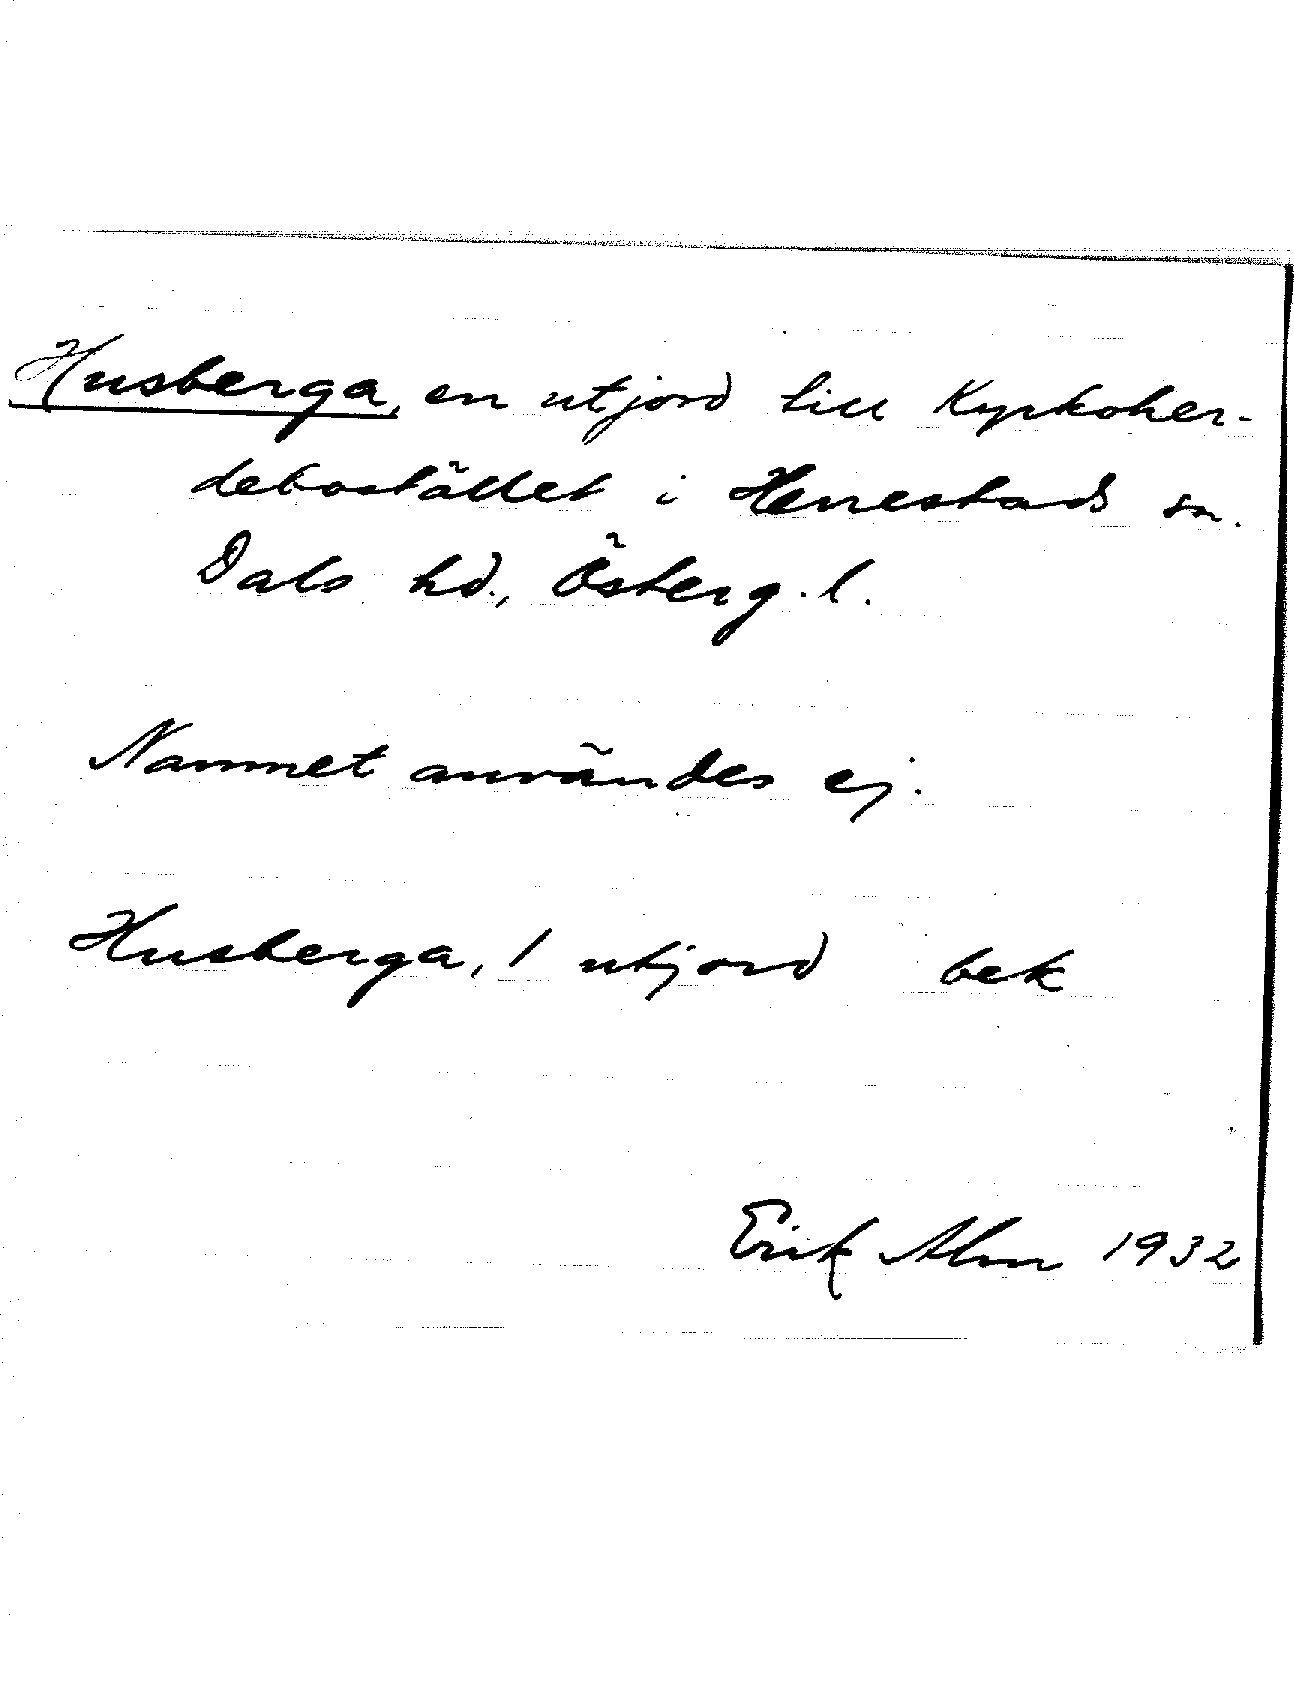 Husberga, en utjord till Kyrkoher-
debostället i Herrestads sn.
Dals hd., Österg. l.
Namnet användes ej.
Husberga, 1 utjord bek
Erik Alm 1932